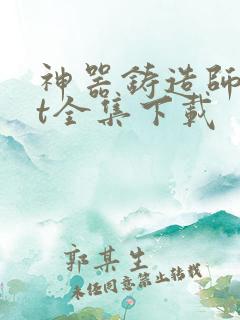 神器铸造師
t全集下載
郭某生
未经同意禁止转载